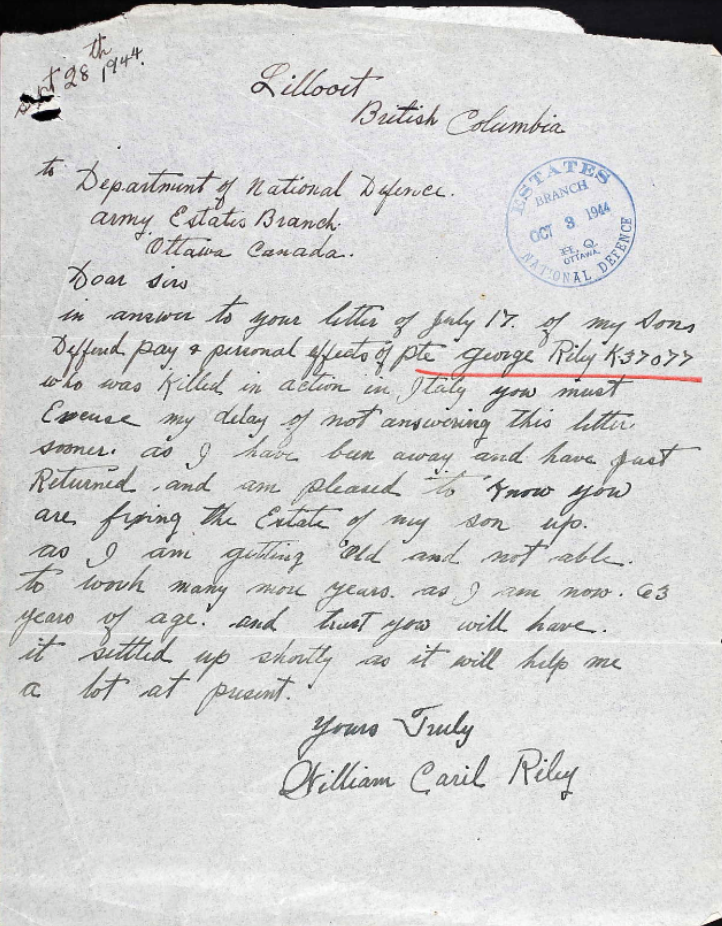 Sept 28th 1944.
Lillooit
British Columbia
to Department of National Defence.
army Estates Branch.
Ottawa Canada.
ESTATES
BRANCH
OCT 3 1944
H.Q.
OTTAWA
NATIONAL DEFENCE
Dear sirs
in answer to your letter of July 17. of my Sons
Defferd pay & personal effects of pte george Riley K37077
who was Killed in action in Italy you must
Excuse my delay of not answering this letter.
sooner. as I have been away and have just
Returned and am pleased to Know you
are fixing the Estate of my son up.
as I am getting Old and not able.
to work many more years. as I am now. 63
years of age. and trust you will have.
it settled up shortly as it will help me
a lot at present.
Yours Truly
William Caril Riley